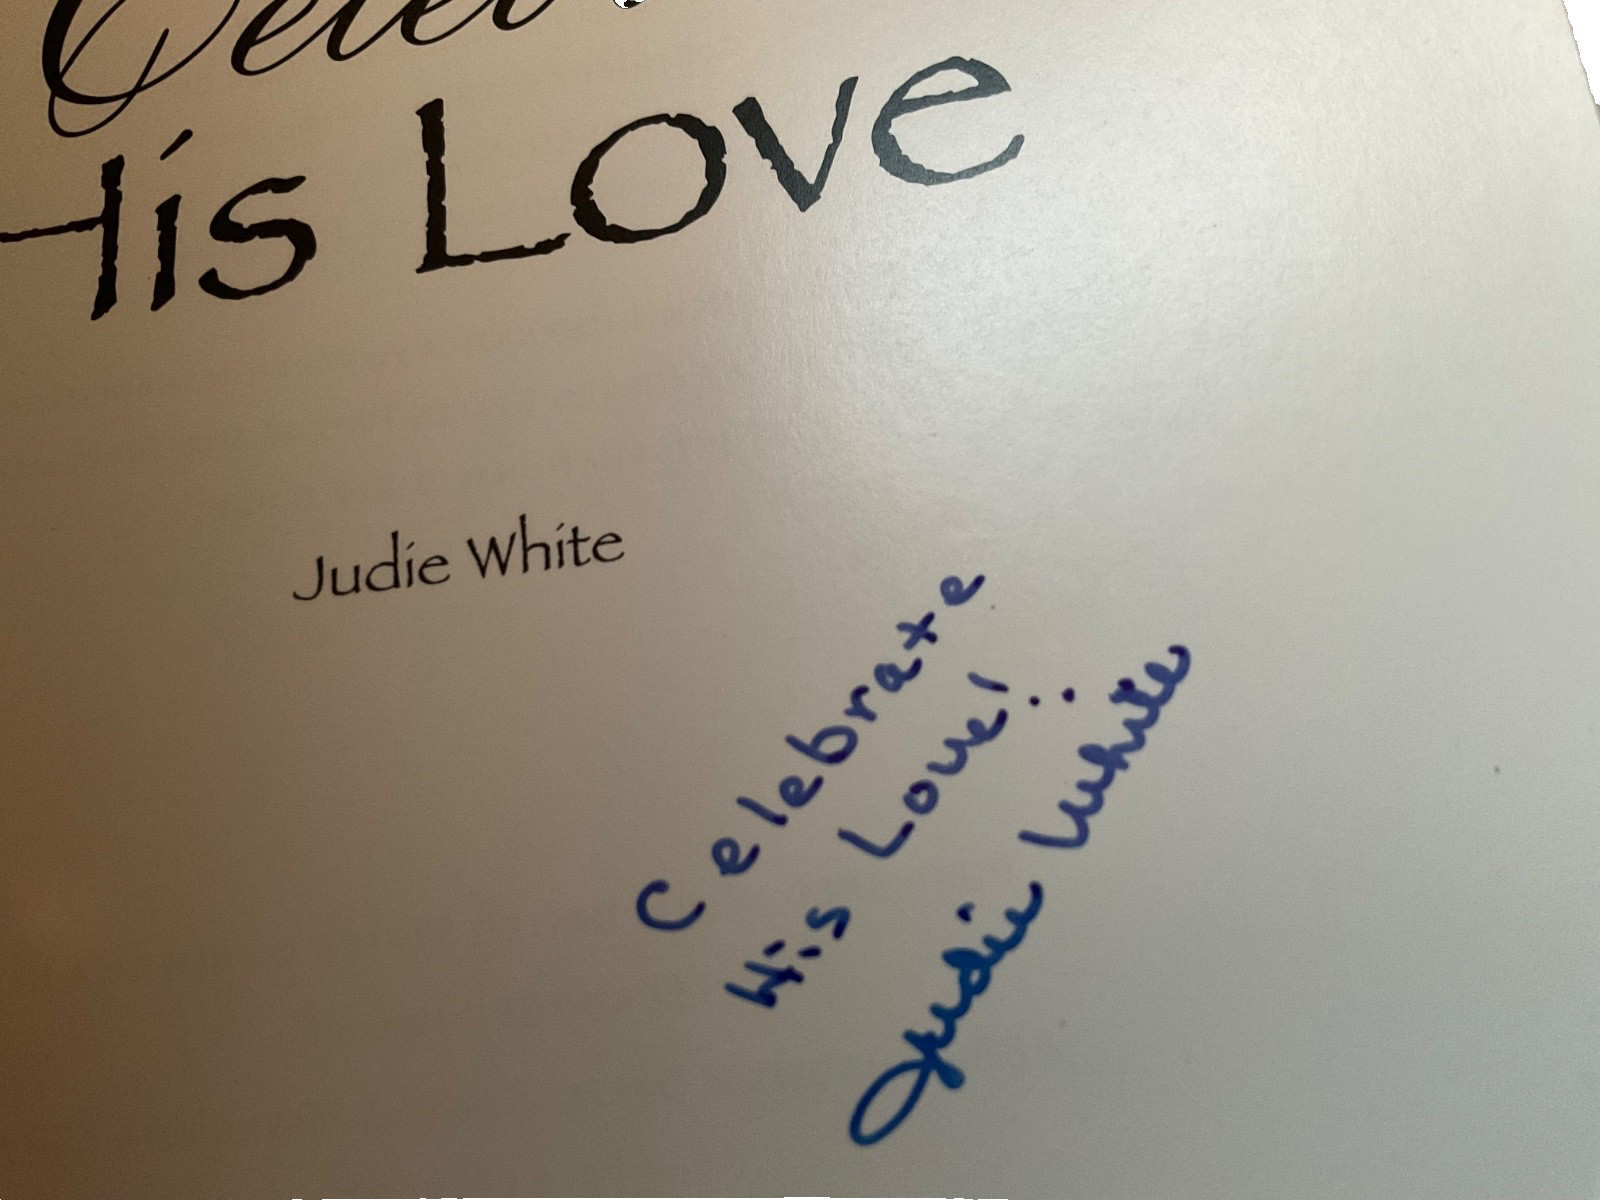 His Love
Judie White
Celebrate
His Love!..
Judie White